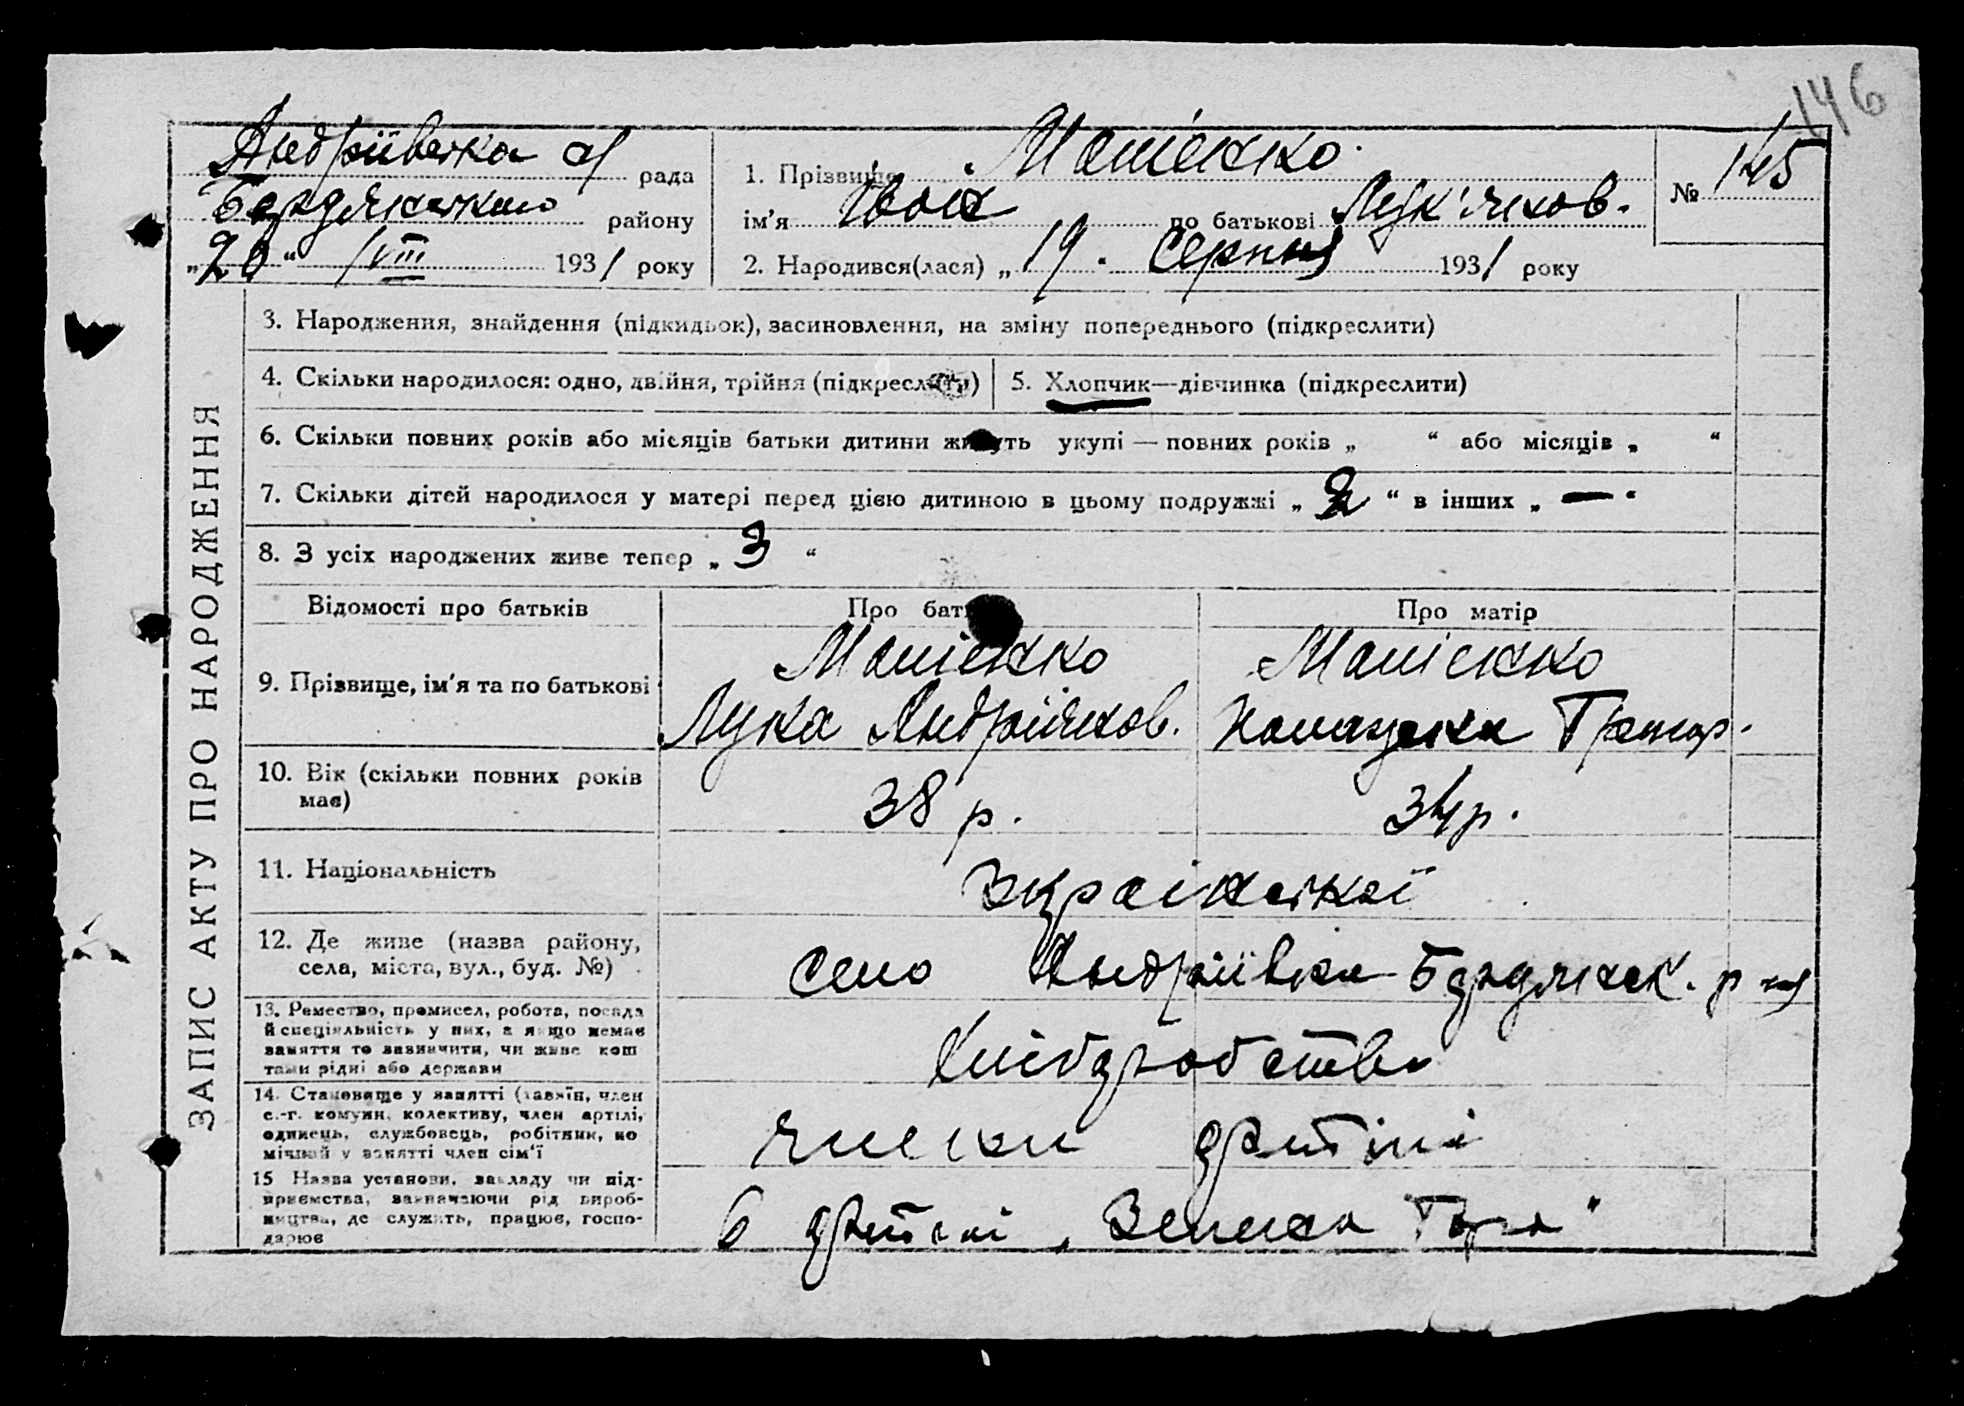 146
Андріївська с/ рада
Бердянського району
„20“ /VIII 1931 року
1. Прізвище Малієнко
ім'я Іван по батькові Лук'янов.
2. Народився(лася) „19. Серпня 1931 року
№ 145
ЗАПИС АКТУ ПРО НАРОДЖЕННЯ
3. Народження, знайдення (підкидьок), засиновлення, на зміну попереднього (підкреслити)
4. Скільки народилося: одно, двійня, трійня (підкреслити)
5. Хлопчик—дівчинка (підкреслити)
6. Скільки повних років або місяців батьки дитини живуть укупі — повних років „ “ або місяців „ “
7. Скільки дітей народилося у матері перед цією дитиною в цьому подружжі „ “ в інших „ — “
8. З усіх народжених живе тепер „ 3 “
Відомості про батьків
Про батька
Про матір
9. Прізвище, ім'я та по батькові
Малієнко
Лука Андріянов.
Малієнко
Григор.
10. Вік (скільки повних років має)
38 р.
34 р.
11. Національність
Української
12. Де живе (назва району,
села, міста, вул., буд. №)
село Андріївка Бердянськ. р-ну
13. Ремество, промисел, робота, посада
й спеціяльність у них, а якщо немає
заняття то зазначити, чи живе кош
тами рідні або держави
Хліборобство
14. Становище у занятті (хазяїн, член
с.-г. комуни, колективу, член артілі,
одинець, службовець, робітник, по
мічний у занятті член сім'ї
члени артілі
15 Назва установи, закладу чи під-
приємства, зазначаючи рід вироб-
ництва, де служить, працює, госпо-
дарює
в артілі „Зелена Гора“